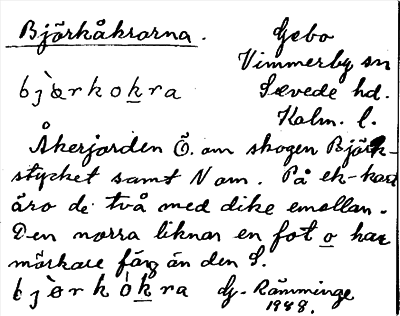 Björkåkrarna. Gebo
Vimmerby sn
bjærkokra Sevede hd.
Kalm. l.
Åkerjorden Ö. om skogen Björk-
stycket samt N om. På ek-kart
äro de två med dike emellan.
Den norra liknar en fot o har
mörkare färg än den S.
bjørkokra G. Rämminge
1988.